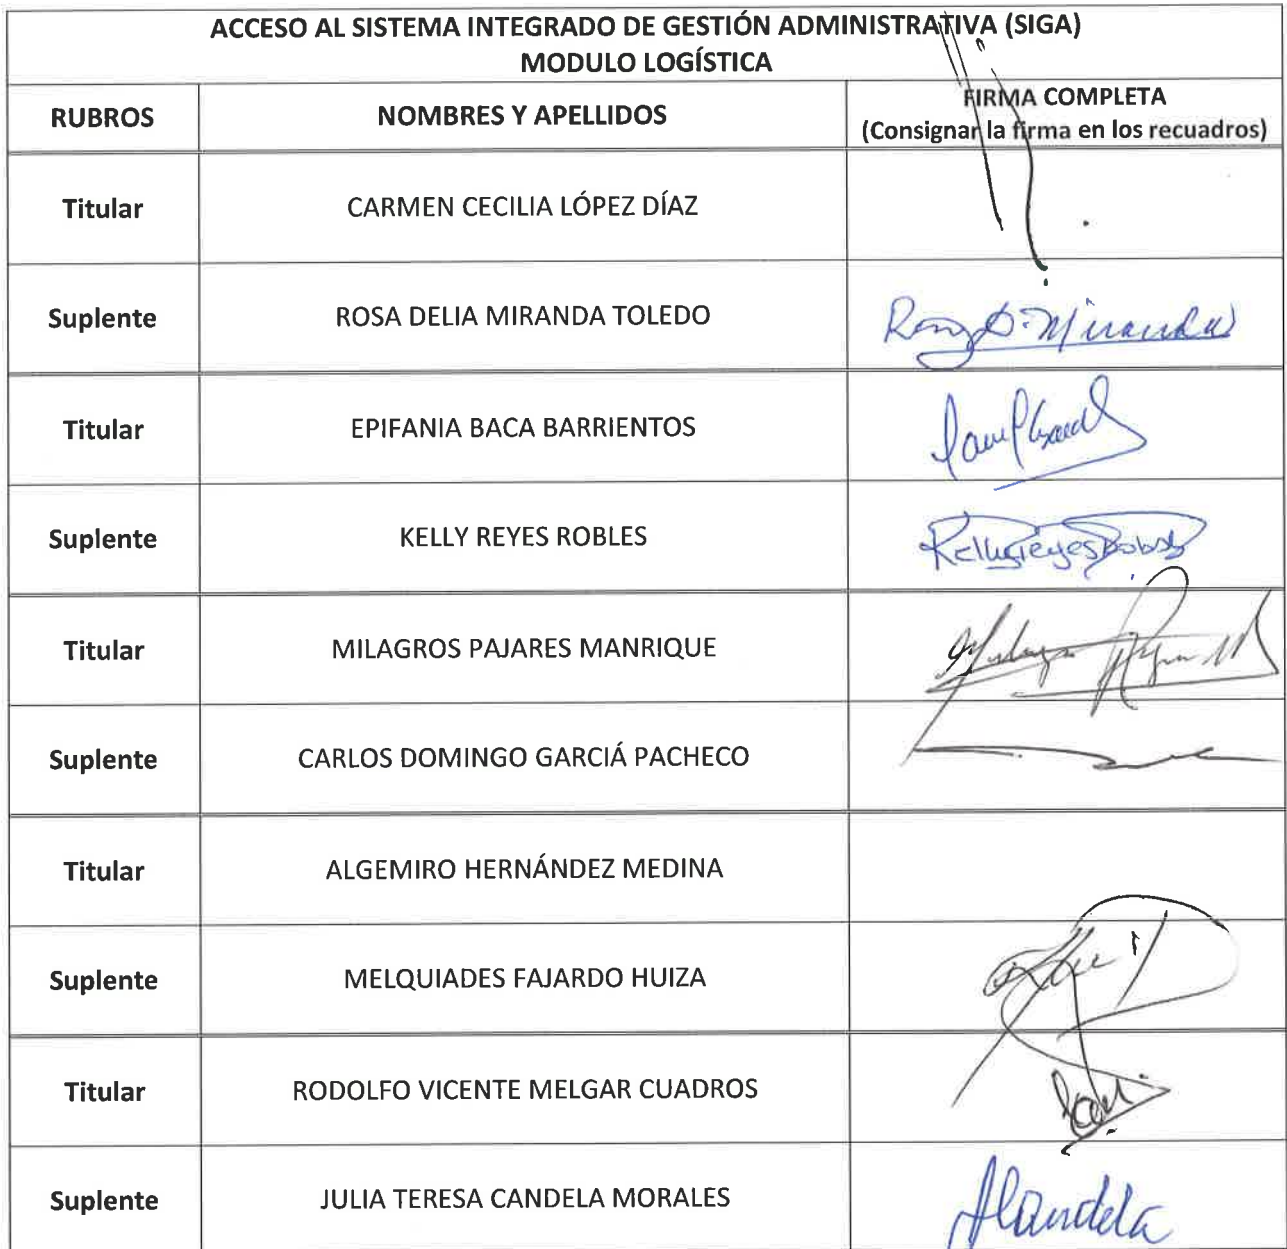 ACCESO AL SISTEMA INTEGRADO DE GESTIÓN ADMINISTRATIVA (SIGA)
MODULO LOGÍSTICA
RUBROS NOMBRES Y APELLIDOS FIRMA COMPLETA
(Consignar la firma en los recuadros)
Titular CARMEN CECILIA LÓPEZ DÍAZ
Suplente ROSA DELIA MIRANDA TOLEDO Rosa D. Miranda
Titular EPIFANIA BACA BARRIENTOS
Suplente KELLY REYES ROBLES Kelly Reyes Robles
Titular MILAGROS PAJARES MANRIQUE
Suplente CARLOS DOMINGO GARCIÁ PACHECO
Titular ALGEMIRO HERNÁNDEZ MEDINA
Suplente MELQUIADES FAJARDO HUIZA
Titular RODOLFO VICENTE MELGAR CUADROS
Suplente JULIA TERESA CANDELA MORALES